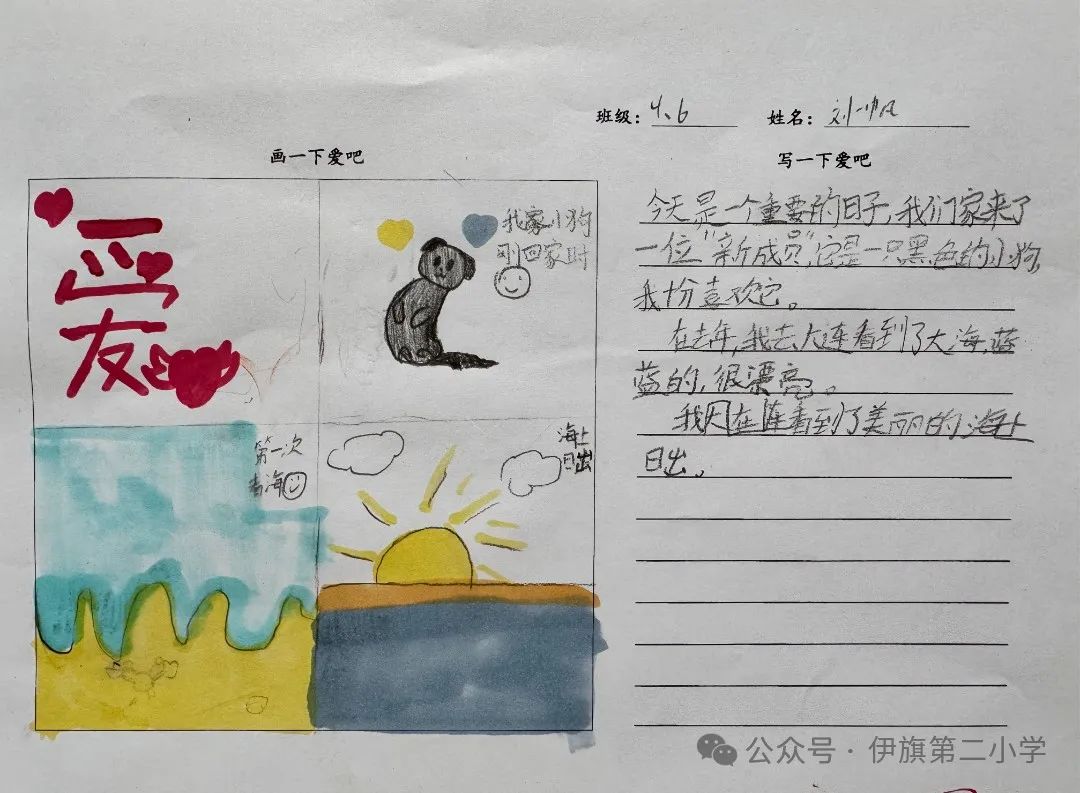 班级：4、6 姓名：刘一帆
画一下爱吧
写一下爱吧
爱
我家小狗
刚回家时
第一次
看海
海上
日出
今天是一个重要的日子，我们家来了
一位“新成员”它是一只黑色的小狗，
我十分喜欢它。
在去年，我去大连看到了大海，蓝
蓝的，很漂亮。
我因在大连看到了美丽的海上
日出。
公众号·伊旗第二小学